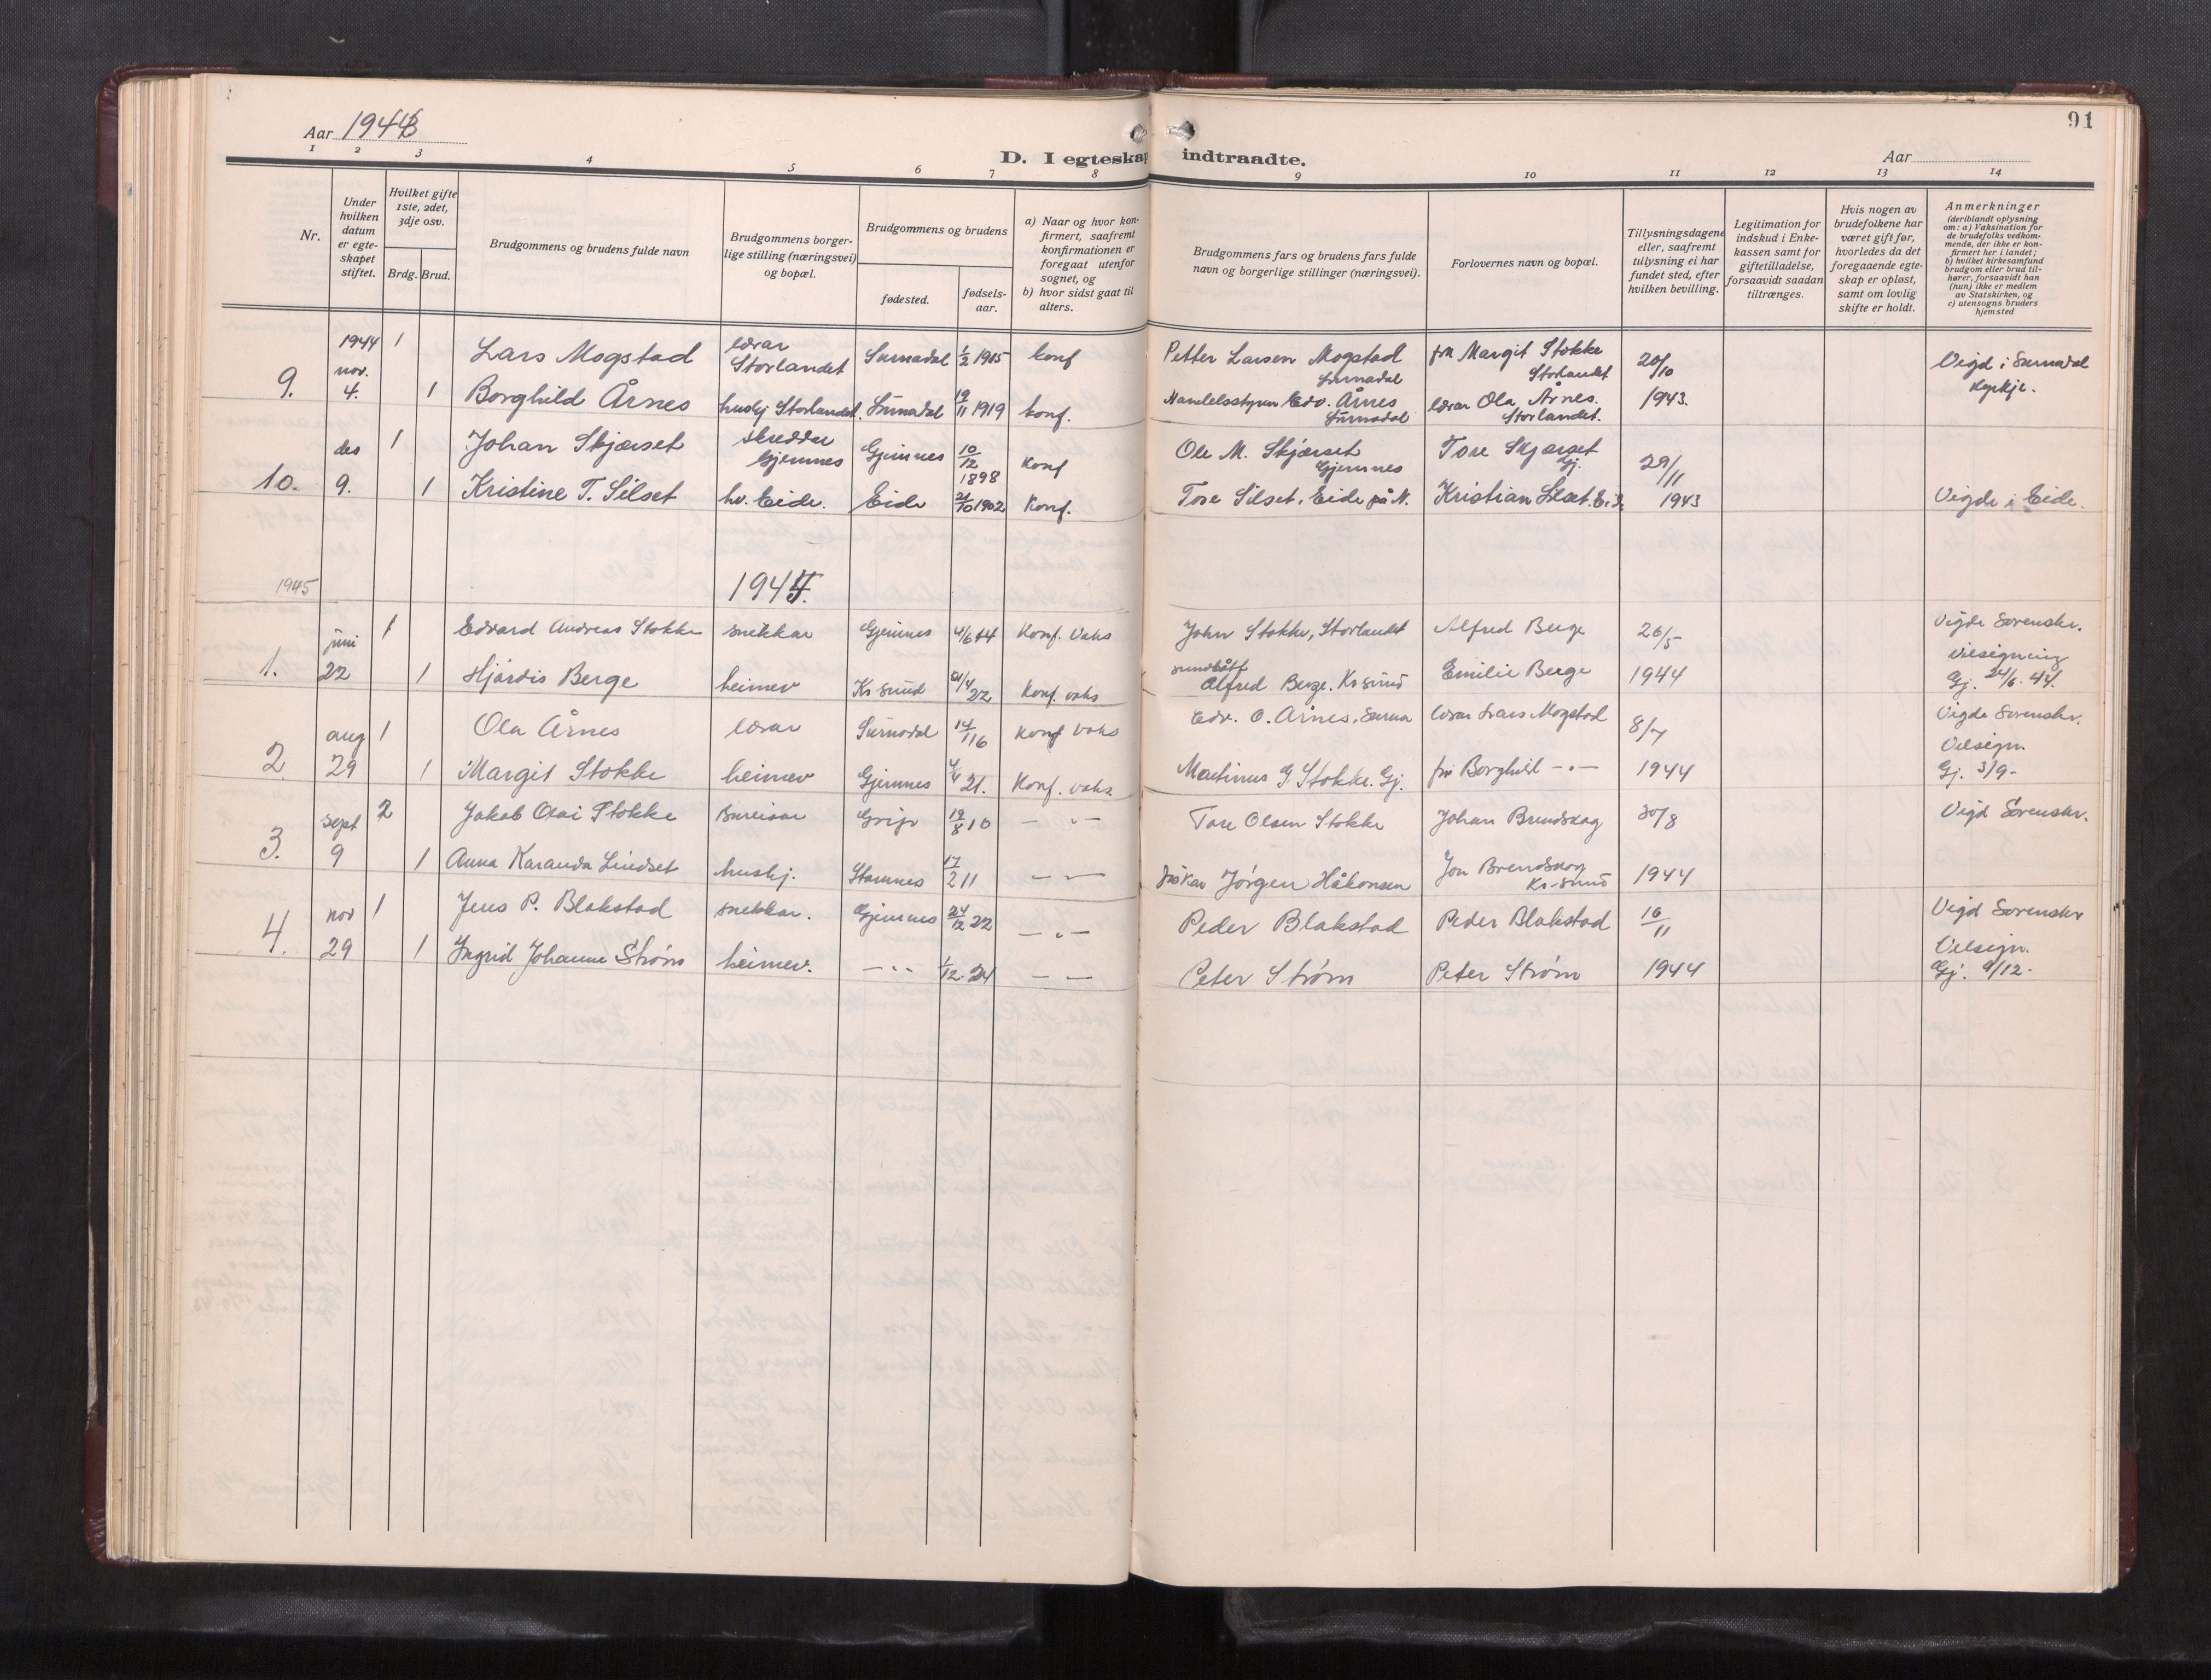 Aar 1943
91
D. I egteskap indtraadte.
Aar
1 2 3 4 5 6 7 8 9 10 11 12 13 14
Nr.
Under hvilken datum er egteskapet stiftet.
Hvilket gifte 1ste, 2det, 3dje osv.
Brdg. Brud.
Brudgommens og brudens fulde navn
Brudgommens borgerlige stilling (næringsvei) og bopæl.
Brudgommens og brudens
fødested.
fødselsaar.
a) Naar og hvor konfirmert, saafremt konfirmationen er foregaat utenfor sognet, og
b) hvor sidst gaat til alters.
Brudgommens fars og brudens fars fulde navn og borgerlige stillinger (næringsvei).
Forlovernes navn og bopæl.
Tillysningsdagene eller, saafremt tillysning ei har fundet sted, efter hvilken bevilling.
Legitimation for indskud i Enkekassen samt for giftetilladelse, forsaavidt saadan tiltrænges.
Hvis nogen av brudefolkene har været gift før, hvorledes da det foregaaende egteskap er opløst, samt om lovlig skifte er holdt.
Anmerkninger
(deriblandt oplysning om: a) Vaksination for de brudefolks vedkommende, der ikke er konfirmert her i landet;
b) hvilket kirkesamfund brudgom eller brud tilhører, forsaavidt han (hun) ikke er medlem av Statskirken, og
c) utensogns bruders hjemsted
9. 1944 nov. 4. 1 Lars Mogstad lærar Storlandet Surnadal 1/2 1915 konf Petter Larsen Mogstad Surnadal fru Margit Stokke Storlandet 20/10 Vigd i Surnadal kyrkje.
1 Borghild Årnes hushj Storlandet. Surnadal 19/11 1919 konf. Handelsstyrer Edv. Årnes Surnadal lærar Ola Årnes. Storlandet. 1943.
10. des 9. 1 Johan Skjærset skreddar Gjemnes Gjemnes 10/12 1898 Konf Ole M. Skjærset Gjemnes Tore Skjærset Gj. 29/11
1 Kristine T. Silset hv. Eide. Eide 1902 Konf. Tore Silset, Eide på N. Kristian Silset. Eide 1943 Vigde i Eide.
1945
1944.
1. juni 22 1 Edvard Andreas Stokke snikkar Gjemnes 4/6 14 Konf. Vaks John Stokke, Storlandet Alfred Berge 26/5 Vigde Sorenskr.
1 Hjørdis Berge heimev Kr sund 21/4 22 Konf. vaks Alfred Berge. Kr sund Emilie Berge 1944 Velsigning Gj. 24/6. 44.
2 aug 29 1 Ola Årnes lærar Surnadal 14/1 16 Konf Vaks Edv. O. Årnes, Surna lærar Lars Mogstad 8/7 Vigde Sorenskr.
1 Margit Stokke heimev Gjemnes 21. Konf. vaks Martinus G Stokke. Gj. fru Borghild –"– 1944 Velsign. Gj. 3/9-
3. sept 9 2 Jakob Olai Stokke bureisar Grip 19/8 10 –"– Tore Olsen Stokke Johan Brendskag 30/8 Vigd Sorenskr.
1 Anna Karanda Lindset hushj. Stamnes 17/2 11 –"– Fiskar Jørgen Håkonsen Jon Brendskag Kr-sund 1944
4. nov 29 1 Jens P. Blakstad snekkar. Gjemnes 24/12 22 –"– Peder Blakstad Peder Blakstad 16/11 Vigd Sorenskr
1 Ingrid Johanne Strøm heimev. –"– 1/12 24 –"– Peter Strøm Peter Strøm 1944 Velsign. Gj. 9/12-